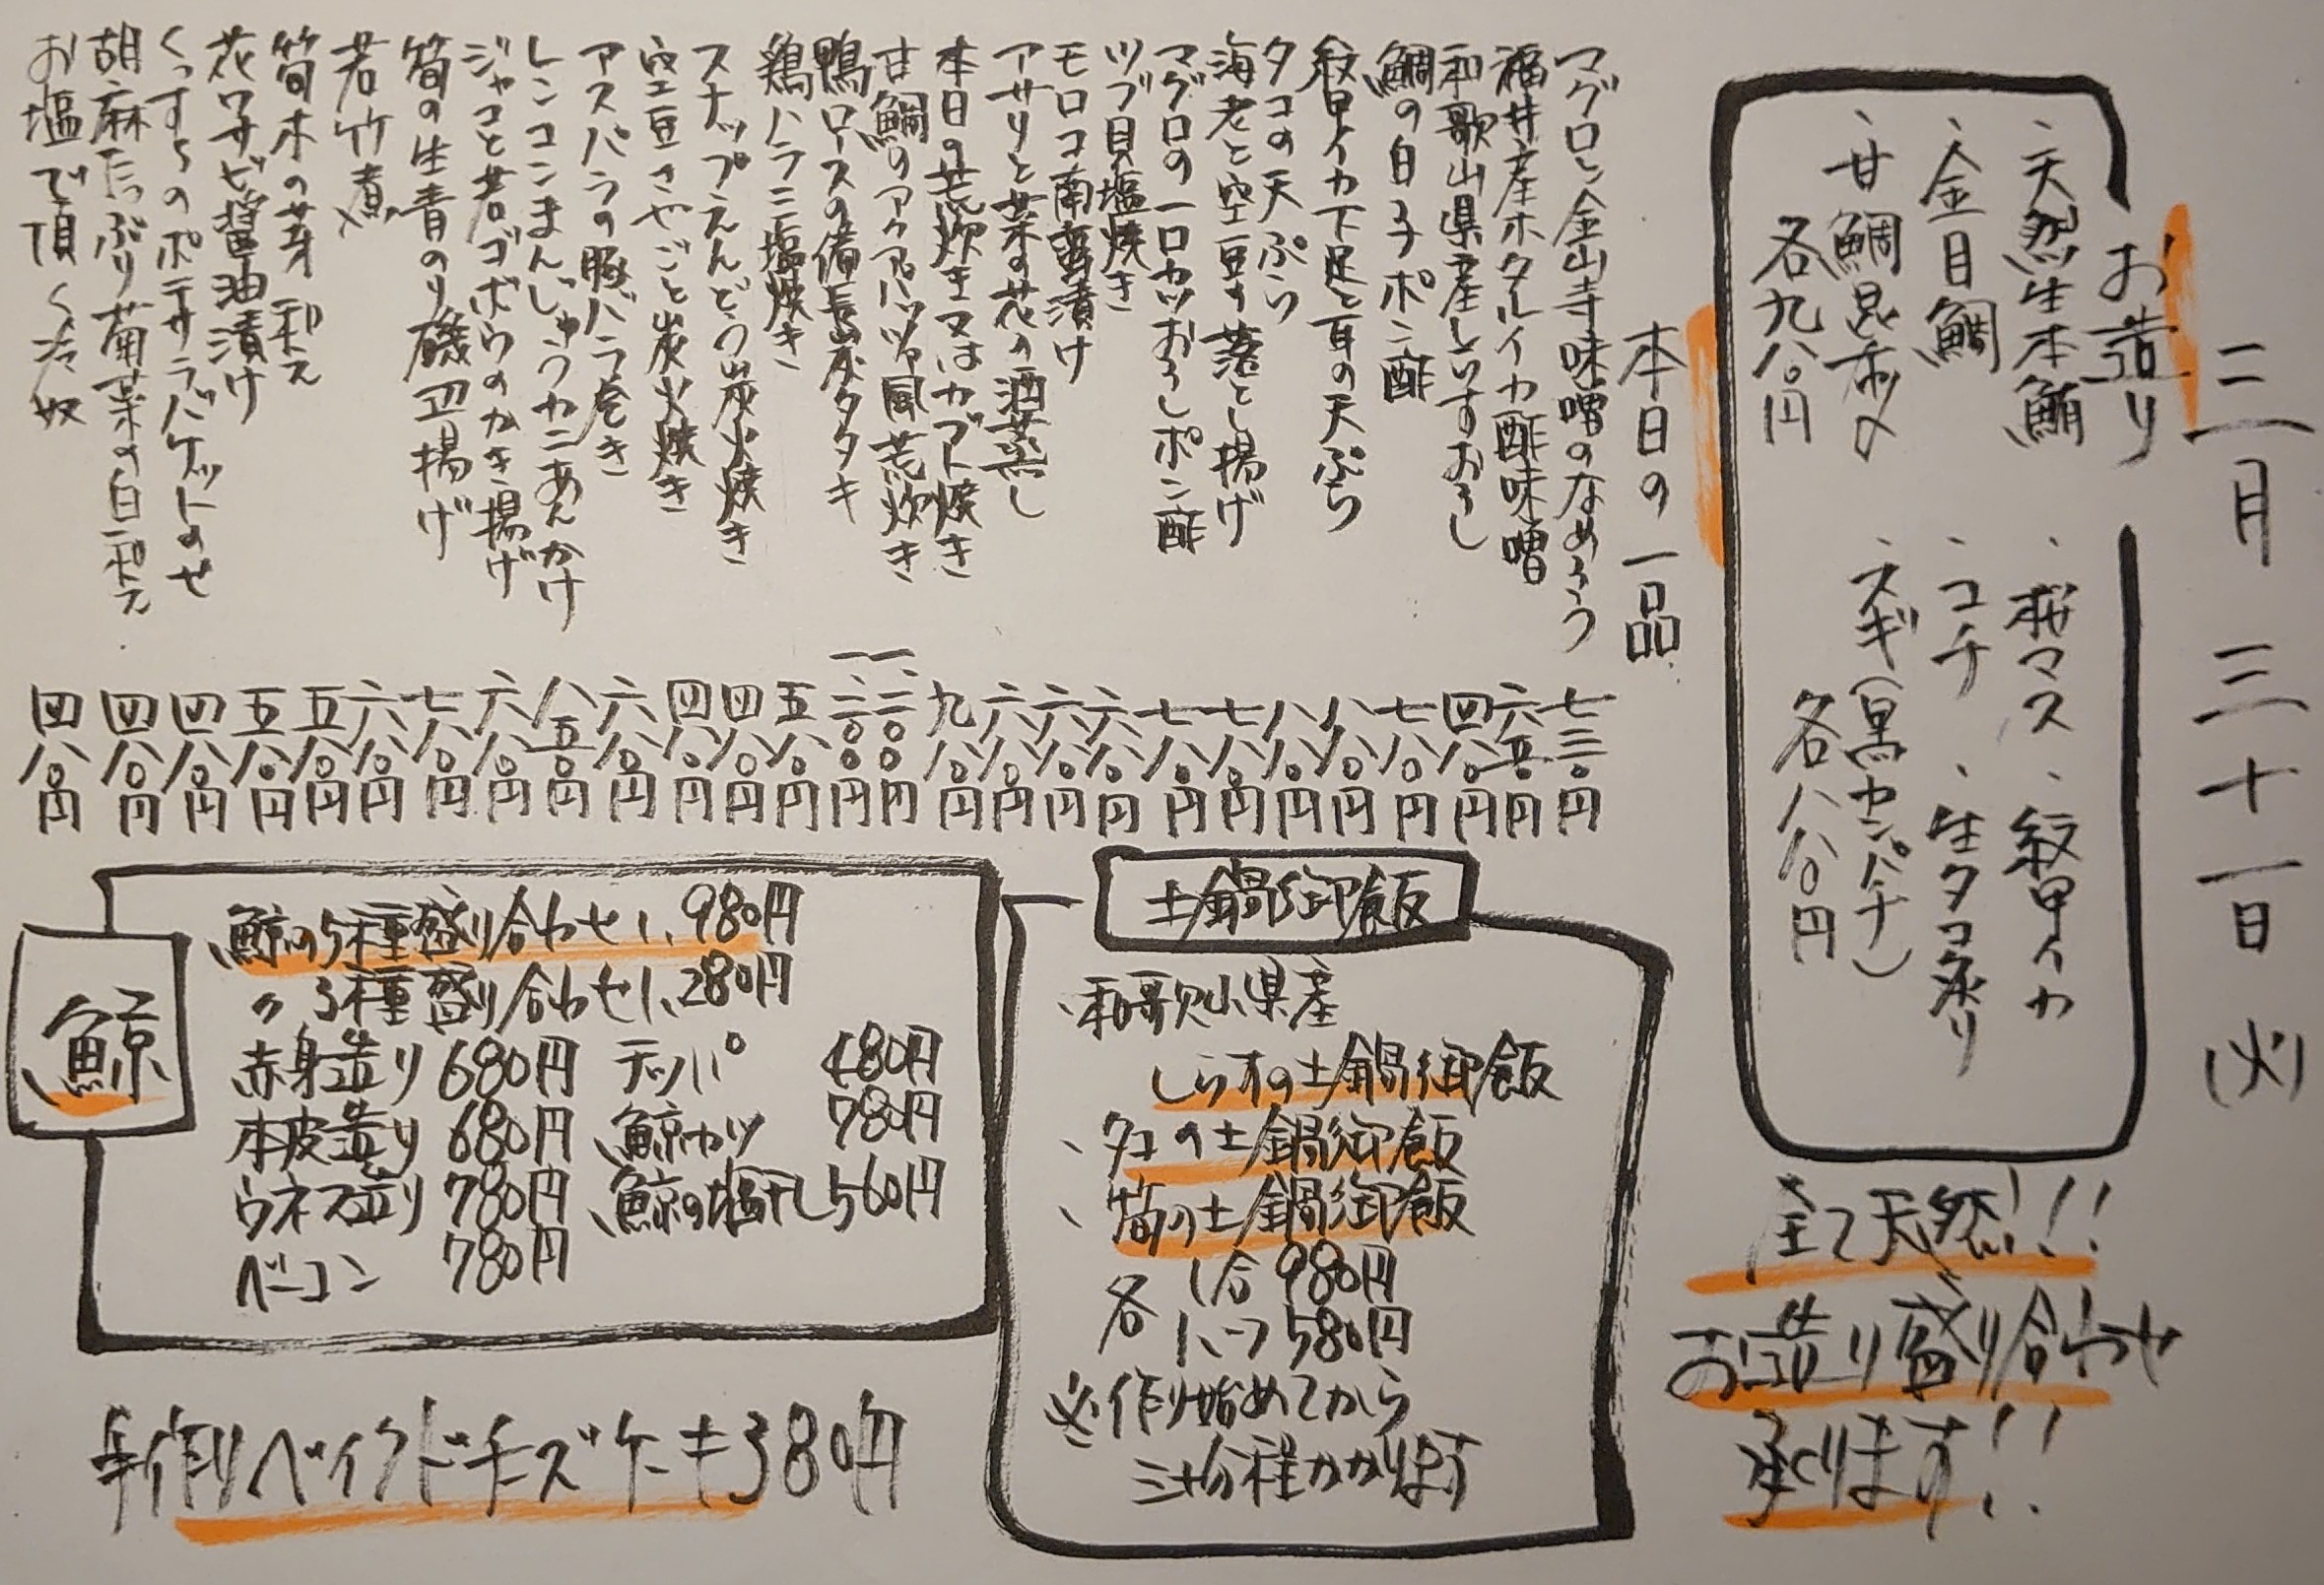 三月三十一日(火)
お造り
・天然生本鮪 ・桜マス ・紋甲イカ
・金目鯛 ・コチ ・生タコ炙り
・甘鯛昆布〆 ・スギ(黒カンパチ)
各九八〇円 各八八〇円
全て天然!!
お造り盛り合わせ
承ります!!
本日の一品
マグロと金山寺味噌のなめろう 七三〇円
福井産ホタルイカ酢味噌 六五〇円
和歌山県産しらすおろし 四八〇円
鯛の白子ポン酢 七八〇円
紋甲イカ下足と耳の天ぷら 八八〇円
タコの天ぷら 八八〇円
海老と空豆の落とし揚げ 七八〇円
マグロの一口カツおろしポン酢 七八〇円
ツブ貝塩焼き 六八〇円
モロコ南蛮漬け 六八〇円
アサリと菜の花の酒蒸し 六八〇円
本日の荒炊き又はカブト焼き 九八〇円
甘鯛のアクアパッツァ風荒炊き 一、二〇〇円
鴨ロースの備長炭タタキ 一、二〇〇円
鶏ハラミ塩焼き 五八〇円
スナップえんどう炭火焼き 四八〇円
空豆さやごと炭火焼き 四八〇円
アスパラの豚バラ巻き 六八〇円
レンコンまんじゅうカニあんかけ 八五〇円
ジャコと若ゴボウのかき揚げ 六八〇円
筍の生青のり磯辺揚げ 七八〇円
若竹煮 六八〇円
筍木の芽和え 五八〇円
花ワサビ醤油漬け 五八〇円
のポテサラバケットのせ 四八〇円
胡麻たっぷり菊菜の白和え 四八〇円
お塩で頂く冷奴 四八〇円
土鍋御飯
・和歌山県産
しらすの土鍋御飯
・タコの土鍋御飯
・筍の土鍋御飯
各 1合 980円
ハーフ 580円
※作り始めてから
三十分程かかります
鯨
鯨の5種盛り合わせ 1,980円
〃 3種盛り合わせ 1,280円
赤身造り 680円 テッパ 480円
本皮造り 680円 鯨カツ 780円
ウネス造り 780円 鯨の塩干し 560円
ベーコン 780円
手作りベイクドチーズケーキ 380円